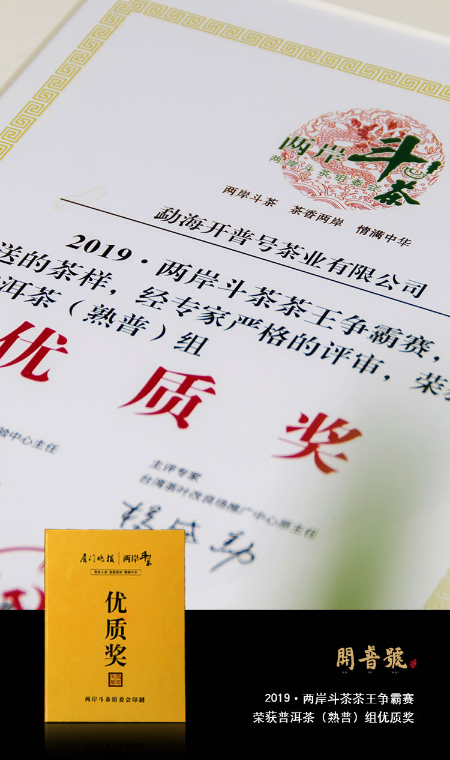 两岸斗茶
两岸斗茶组委会
两岸斗茶 茶香两岸 情满中华
勐海开普号茶业有限公司
2019·两岸斗茶茶王争霸赛，
送的茶样，经专家严格的评审，荣
洱茶（熟普）组
优质奖
验中心主任
主评专家
台湾茶叶改良场推广中心原主任
厦门晚报 两岸斗茶
优质奖
两岸斗茶组委会印制
開普號
2019·两岸斗茶茶王争霸赛
荣获普洱茶（熟普）组优质奖